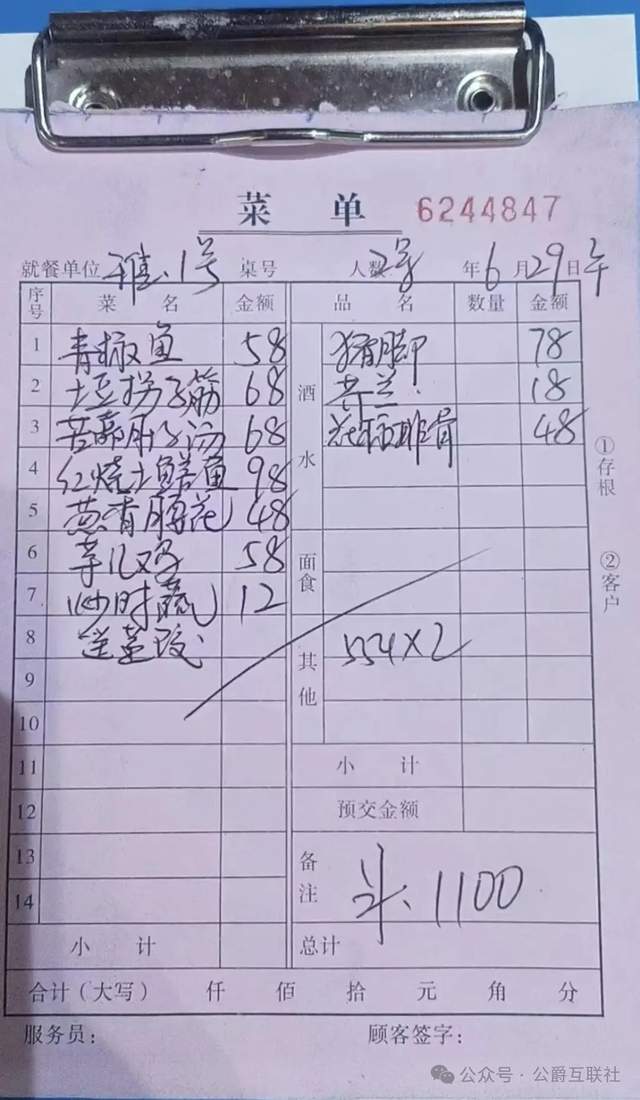 菜 单 6244847
就餐单位 雅.1号 桌号 人数 2号 年 6 月 29 日 午
序号 菜 名 金额 品 名 数量 金额
1 青椒鱼 58 酒水 猪脚 78
2 土豆拐子筋 68 芥兰 18
3 68 排骨 48
4 红烧土鳝鱼 98
5 葱香腰花 48
6 芋儿鸡 58 面食
7 炒时蔬 12
8 送 其他 554×2
9
10
11 小 计
12 预交金额
13 备注 1100
14
小 计 总计
合计(大写) 仟 佰 拾 元 角 分
服务员: 顾客签字:
①存根
②客户
公众号·公爵互联社